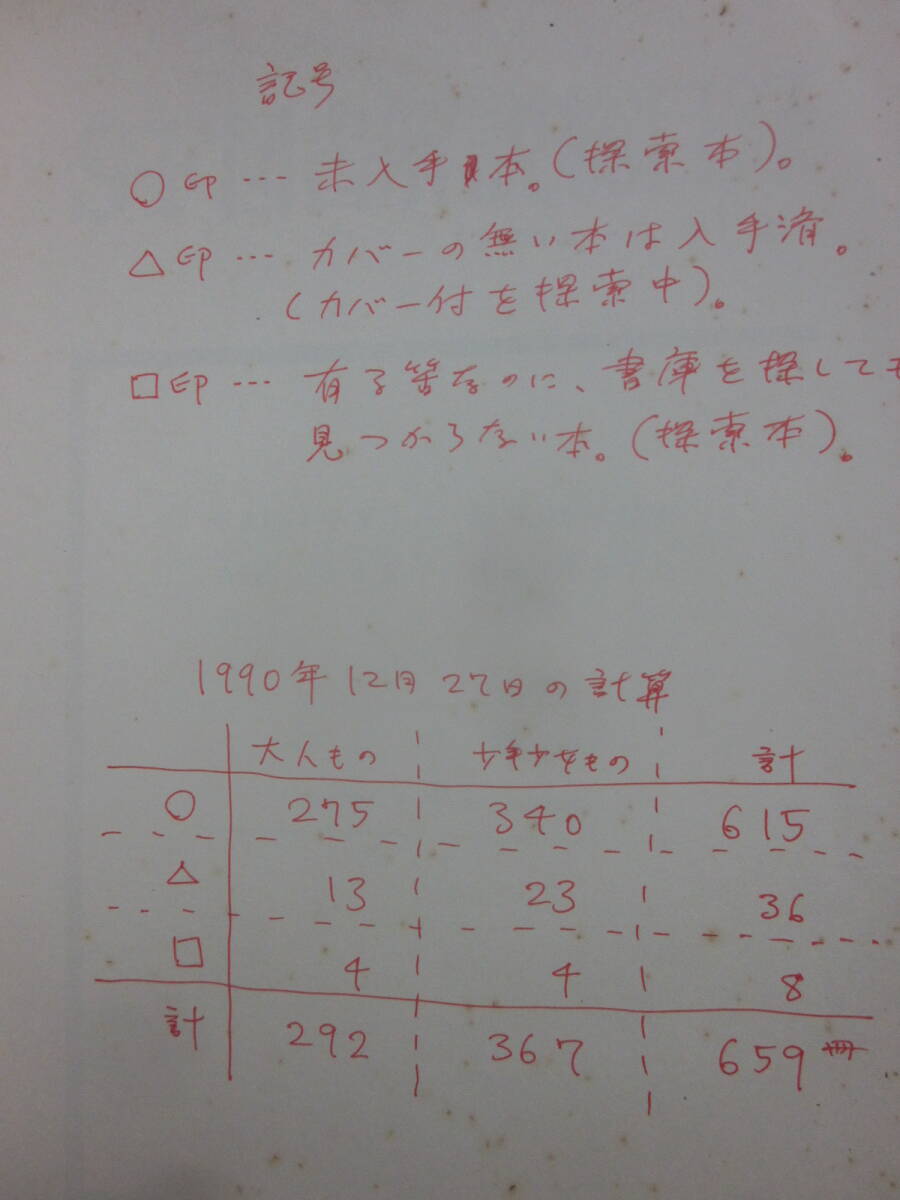 記号
○印 … 未入手本。(探索本)。
△印 … カバーの無い本は入手済。
(カバー付を探索中)。
□印 … 有る筈なのに、書庫を探しても
見つからない本。(探索本)。
1990年12月27日の計算
大人もの 少年少女もの 計
○ 275 340 615
△ 13 23 36
□ 4 4 8
計 292 367 659冊